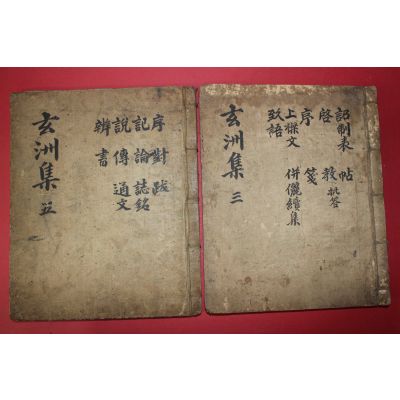 詔制表 帖
啓 教 批答
序 箋
上樑文 併儷續集
致語
玄洲集 三
序 對 跋
記 論 誌銘
說 傳 通文
辨 書
玄洲集 五